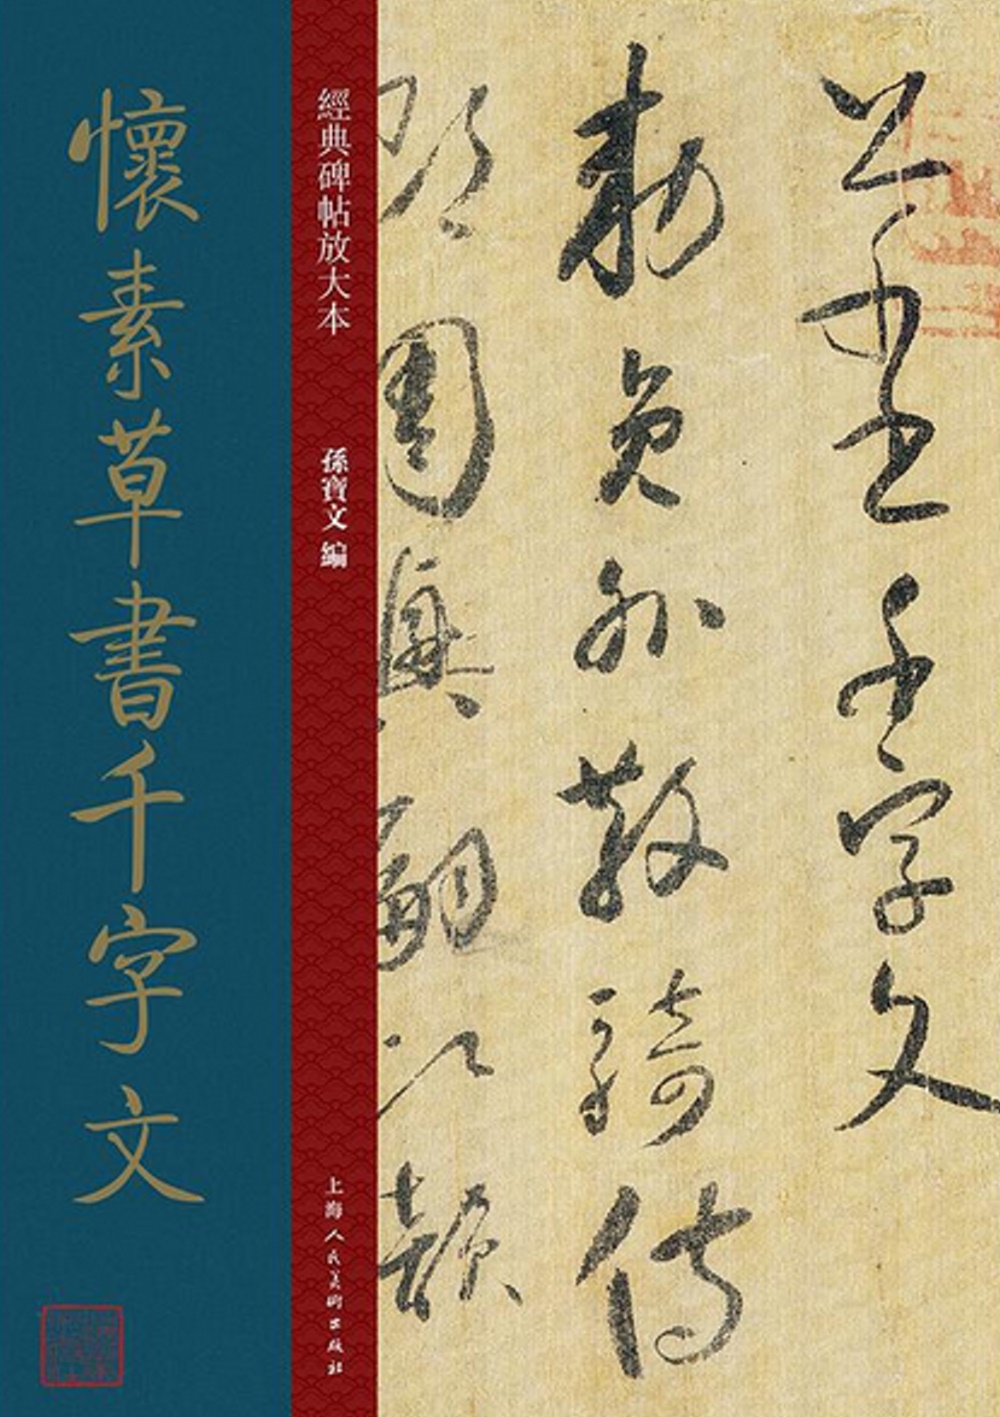 懷素草書千字文
經典碑帖放大本
孫寶文 編
上海人民美術出版社
草書千字文
勅員外散騎侍
郎周興嗣次韻